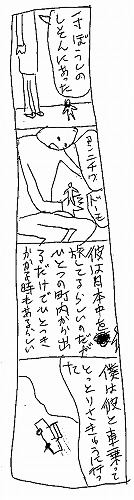 一寸ぼうしの
しそんにあった
コンニチワ
ドーモ
彼は日本中を
旅してるらしいのだが
ひとつの町内から出
るだけでひとつき
かかる時もあるらしい
僕は彼と車乗って
とっとりさきゅうに行っ
た